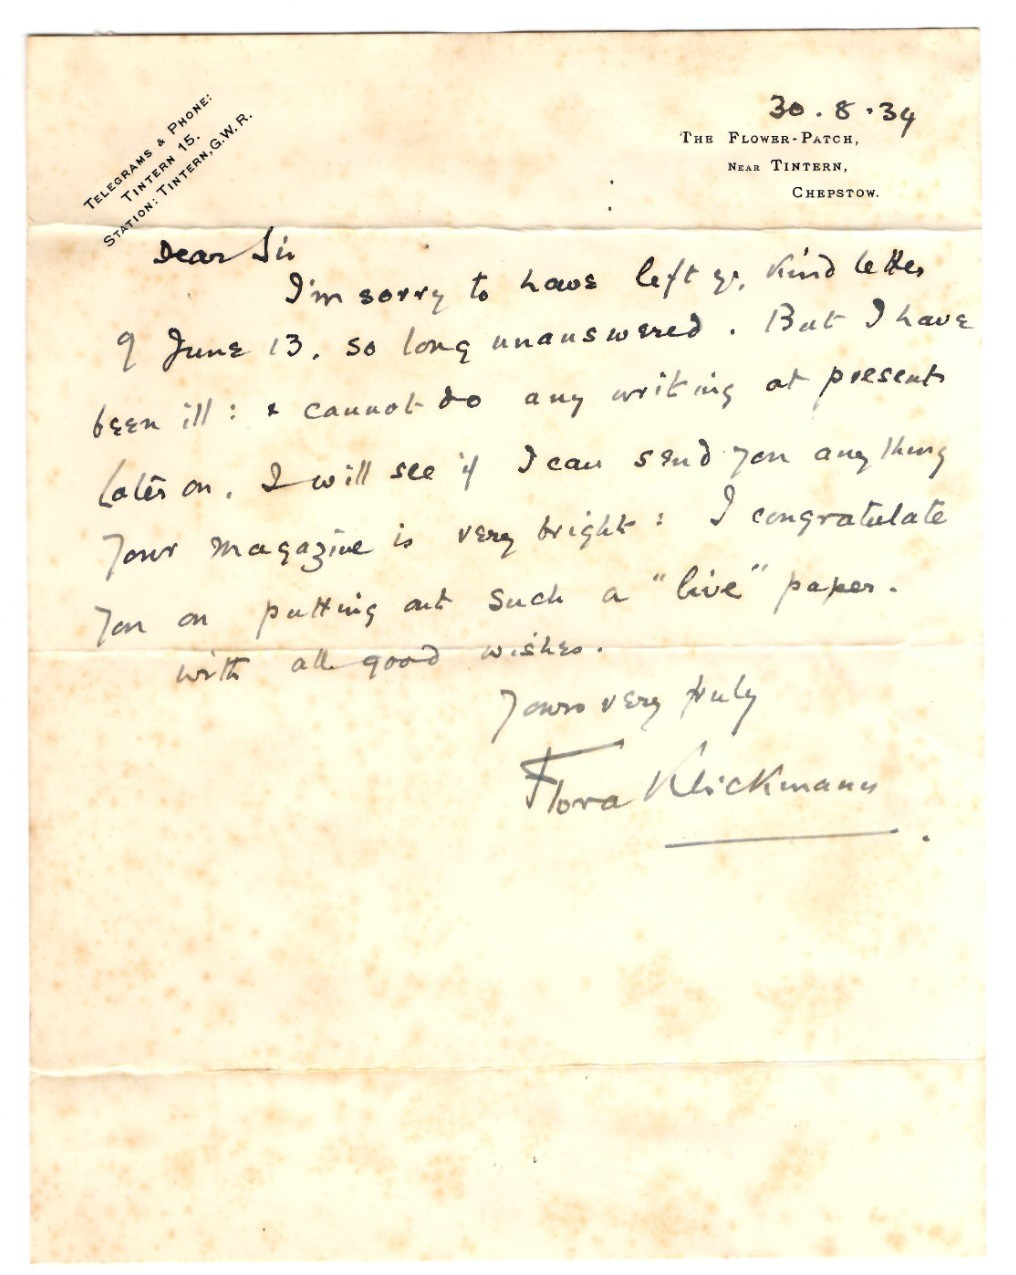 TELEGRAMS & PHONE:
TINTERN 15.
STATION: TINTERN, G.W.R.
30.8.34
THE FLOWER-PATCH,
NEAR TINTERN,
CHEPSTOW.
Dear Sir
I'm sorry to have left yr. kind letter
of June 13, so long unanswered. But I have
been ill: & cannot do any writing at present
Later on, I will see if I can send you anything
Your magazine is very bright: I congratulate
you on putting out such a "live" paper.
with all good wishes.
Yours very truly
Flora Klickmann